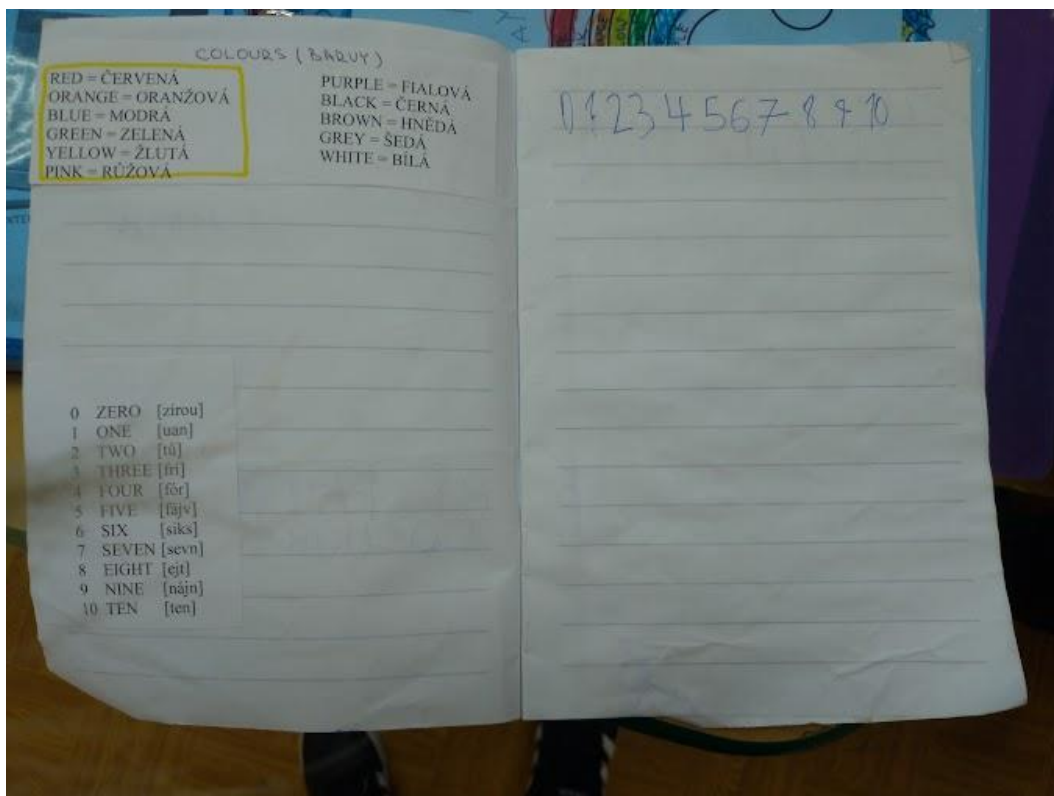 COLOURS (BARVY)
RED = ČERVENÁ
ORANGE = ORANŽOVÁ
BLUE = MODRÁ
GREEN = ZELENÁ
YELLOW = ŽLUTÁ
PINK = RŮŽOVÁ
PURPLE = FIALOVÁ
BLACK = ČERNÁ
BROWN = HNĚDÁ
GREY = ŠEDÁ
WHITE = BÍLÁ
0 ZERO [zírou]
1 ONE [uan]
2 TWO [tů]
3 THREE [frí]
4 FOUR [fór]
5 FIVE [fájv]
6 SIX [siks]
7 SEVEN [sevn]
8 EIGHT [ejt]
9 NINE [nájn]
10 TEN [ten]
0 1 2 3 4 5 6 7 8 9 10